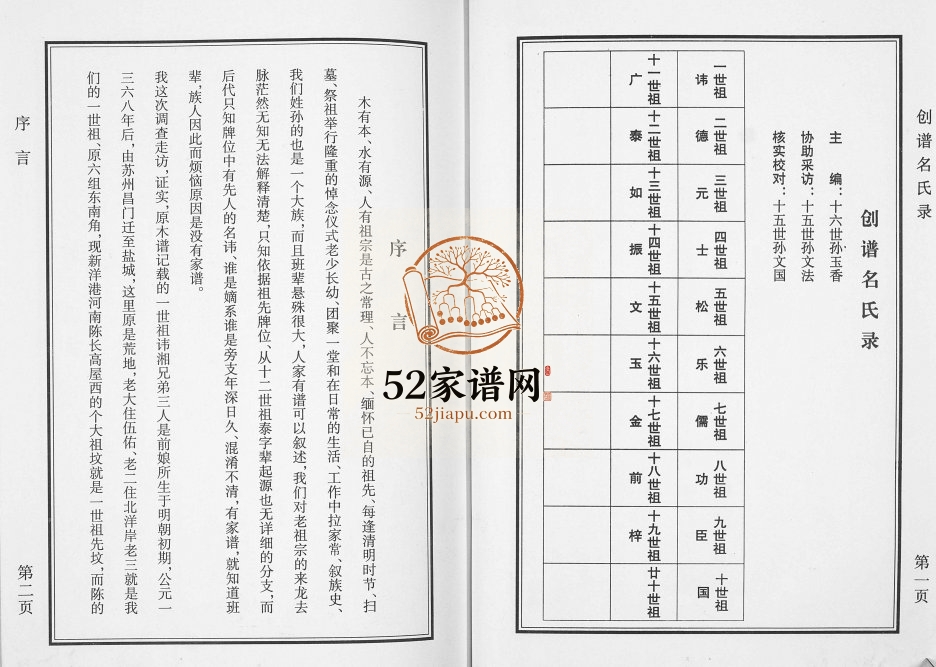 创谱名氏录
第一页
创谱名氏录
主　编：十六世孙玉香
协助采访：十五世孙文法
核实校对：十五世孙文国
一世祖 讳
二世祖 德
三世祖 元
四世祖 士
五世祖 松
六世祖 乐
七世祖 儒
八世祖 功
九世祖 臣
十世祖 国
十一世祖 广
十二世祖 泰
十三世祖 如
十四世祖 振
十五世祖 文
十六世祖 玉
十七世祖 金
十八世祖 前
十九世祖 梓
廿十世祖
52家谱网
52jiapu.com
序言
木有本、水有源、人有祖宗是古之常理、人不忘本、缅怀已自的祖先、每逢清明时节、扫
墓、祭祖举行隆重的悼念仪式老少长幼、团聚一堂和在日常的生活、工作中拉家常、叙族史、
我们姓孙的也是一个大族，而且班辈悬殊很大，人家有谱可以叙述，我们对老祖宗的来龙去
脉茫然无知无法解释清楚，只知依据祖先牌位、从十二世祖泰字辈起源也无详细的分支，而
后代只知牌位中有先人的名讳、谁是嫡系谁是旁支年深日久、混淆不清，有家谱，就知道班
辈，族人因此而烦恼原因是没有家谱。
我这次调查走访，证实，原木谱记载的一世祖讳湘兄弟三人是前娘所生于明朝初期，公元一
三六八年后，由苏州昌门迁至盐城，这里原是荒地，老大住伍佑、老二住北洋岸老三就是我
们的一世祖、原六组东南角，现新洋港河南陈长高屋西的个大祖坟就是一世祖先坟，而陈的
序言
第二页